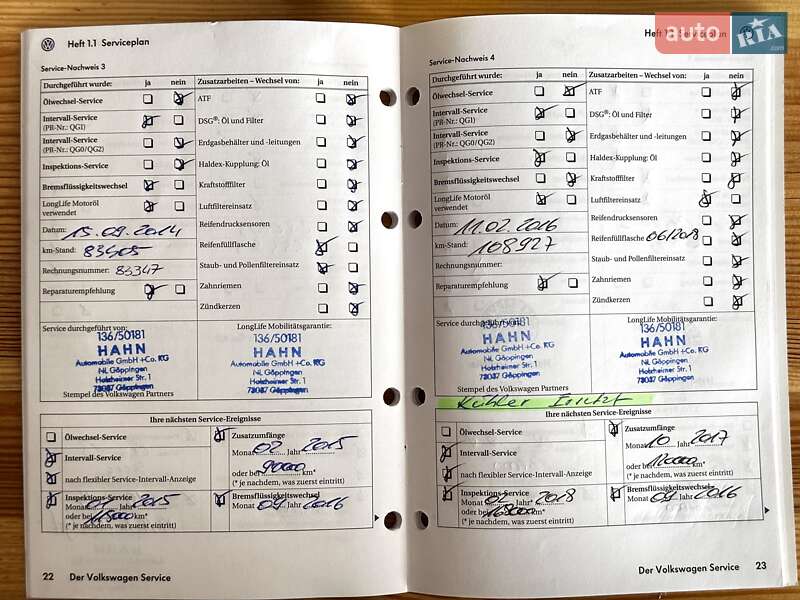 Heft 1.1 Serviceplan
Service-Nachweis 3
Durchgeführt wurde: ja nein
Ölwechsel-Service
Intervall-Service
(PR-Nr.: QG1)
Intervall-Service
(PR-Nr.: QG0/QG2)
Inspektions-Service
Bremsflüssigkeitswechsel
LongLife Motoröl
verwendet
Datum: 15.09.2014
km-Stand: 83405
Rechnungsnummer: 83347
Reparaturempfehlung
Zusatzarbeiten – Wechsel von: ja nein
ATF
DSG®: Öl und Filter
Erdgasbehälter und -leitungen
Haldex-Kupplung: Öl
Kraftstofffilter
Luftfiltereinsatz
Reifendrucksensoren
Reifenfüllflasche
Staub- und Pollenfiltereinsatz
Zahnriemen
Zündkerzen
Service durchgeführt von:
136/50181
HAHN
Automobile GmbH +Co. KG
NL Göppingen
Holzheimer Str. 1
73037 Göppingen
Stempel des Volkswagen Partners
LongLife Mobilitätsgarantie:
136/50181
HAHN
Automobile GmbH +Co. KG
NL Göppingen
Holzheimer Str. 1
73037 Göppingen
Ihre nächsten Service-Ereignisse
Ölwechsel-Service
Intervall-Service
nach flexibler Service-Intervall-Anzeige
Inspektions-Service
Monat Jahr 2015
oder bei 115000 km*
(* je nachdem, was zuerst eintritt)
Zusatzumfänge
Monat 02 Jahr 2015
oder bei 90000 km*
(* je nachdem, was zuerst eintritt)
Bremsflüssigkeitswechsel
Monat 09 Jahr 2016
22 Der Volkswagen Service
Heft 1.1 Serviceplan
auto RIA.com
Service-Nachweis 4
Durchgeführt wurde: ja nein
Ölwechsel-Service
Intervall-Service
(PR-Nr.: QG1)
Intervall-Service
(PR-Nr.: QG0/QG2)
Inspektions-Service
Bremsflüssigkeitswechsel
LongLife Motoröl
verwendet
Datum: 11.02.2016
km-Stand: 108927
Rechnungsnummer:
Reparaturempfehlung
Zusatzarbeiten – Wechsel von: ja nein
ATF
DSG®: Öl und Filter
Erdgasbehälter und -leitungen
Haldex-Kupplung: Öl
Kraftstofffilter
Luftfiltereinsatz
Reifendrucksensoren
Reifenfüllflasche 06/2018
Staub- und Pollenfiltereinsatz
Zahnriemen
Zündkerzen
Service durchgeführt von:
136/50181
HAHN
Automobile GmbH +Co. KG
NL Göppingen
Holzheimer Str. 1
73037 Göppingen
Stempel des Volkswagen Partners
LongLife Mobilitätsgarantie:
136/50181
HAHN
Automobile GmbH +Co. KG
NL Göppingen
Holzheimer Str. 1
73037 Göppingen
Kühler
Ihre nächsten Service-Ereignisse
Ölwechsel-Service
Intervall-Service
nach flexibler Service-Intervall-Anzeige
Inspektions-Service
Monat Jahr* 2018
oder bei km*
(* je nachdem, was zuerst eintritt)
Zusatzumfänge
Monat 10 Jahr* 2017
oder bei km*
(* je nachdem, was zuerst eintritt)
Bremsflüssigkeitswechsel
Monat 09 Jahr 2016
Der Volkswagen Service 23